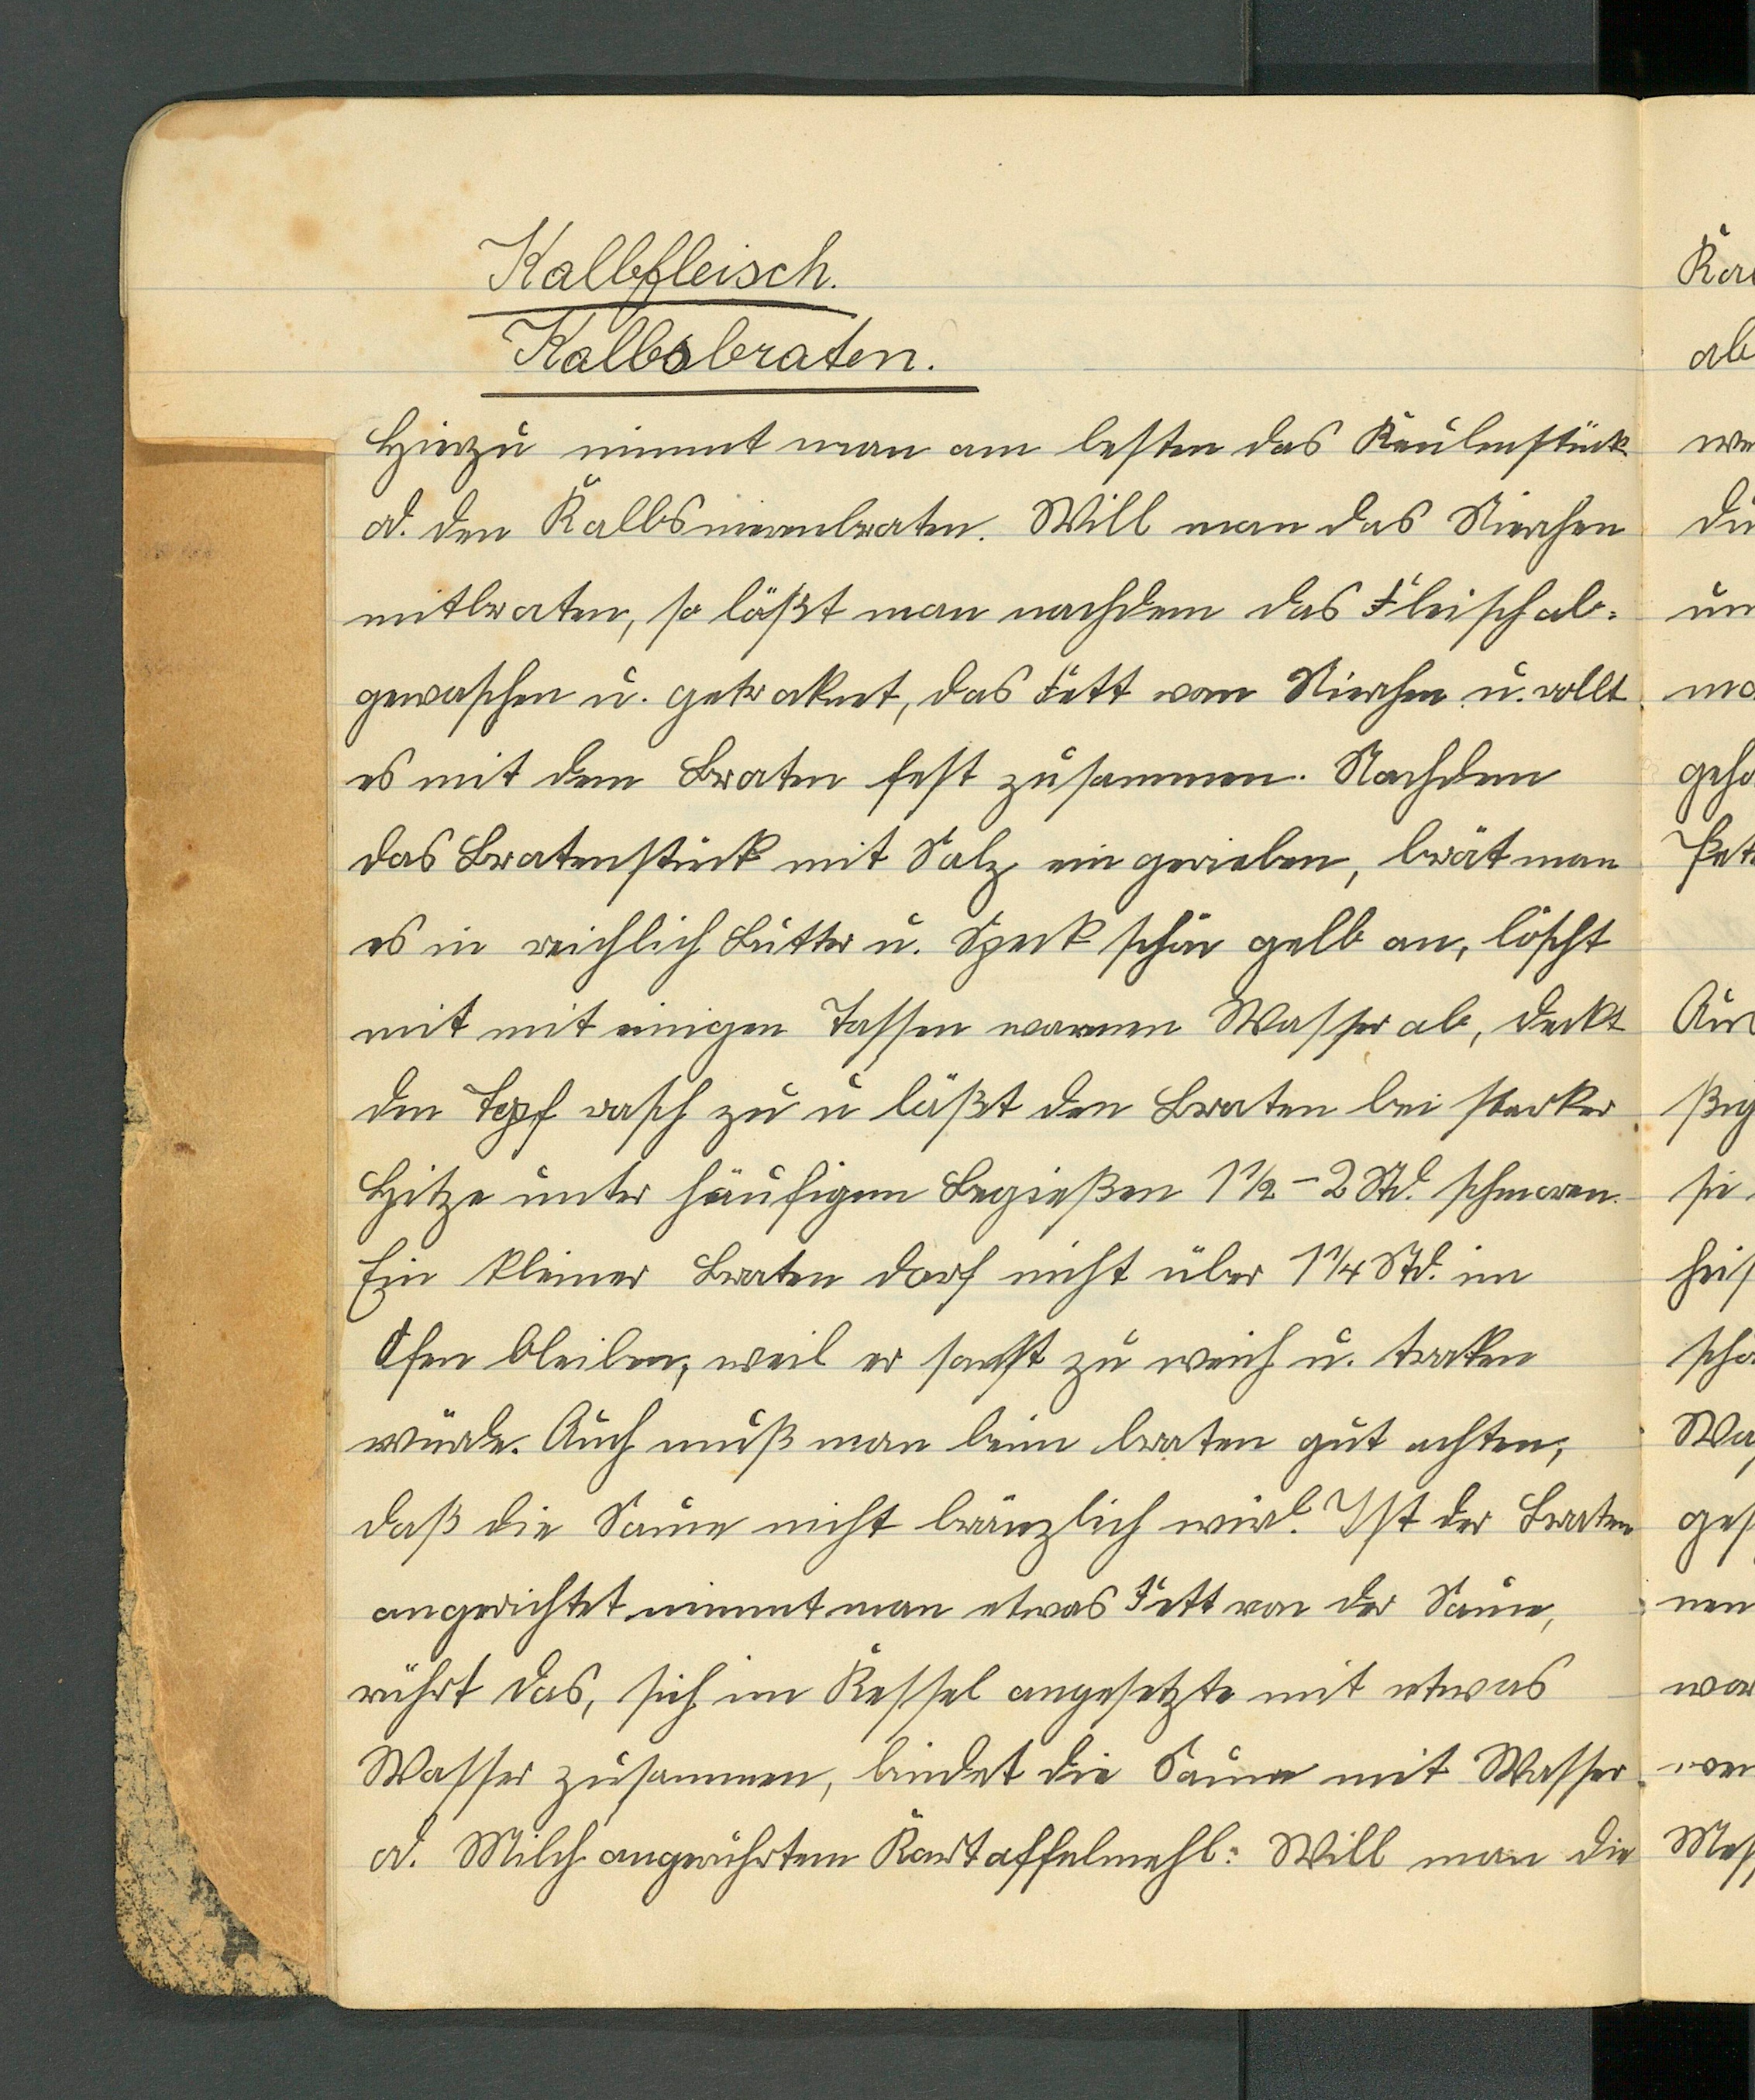 Kalbfleisch.
Kalbsbraten.
Hierzu nimmt man am besten das Keulenstück
od. den Kalbsnierenbraten. Will man das Nierchen
mitbraten, so läßt man nachdem das Fleisch ab-
gewaschen u. getroknet, das Fett vom Nierchen u. rollt
es mit dem Braten fest zusammen. Nachdem
das Bratenstück mit Salz eingerieben, brät man
es in reichlich Butter u. Speck schön gelb an, löscht
mit mit einigen Tassen warmen Wasser ab, deckt
den Topf rasch zu u läßt den Braten bei starker
Hitze unter häufigem Begießen 1 1/2 - 2 Std. schmoren.
Ein kleiner Braten darf nicht über 1 1/4 Std. im
Ofen bleiben, weil er sonst zu weich u. trocken
würde. Auch muß man beim braten gut achten,
daß die Sauce nicht bränzlich wird. Ist der Braten
angerichtet nimmt man etwas Fett von der Sauce,
rührt das, sich im Kessel angesetzte mit etwas
Wasser zusammen, bindet die Sauce mit Wasser
od. Milch angerührtem Kartoffelmehl. Will man die